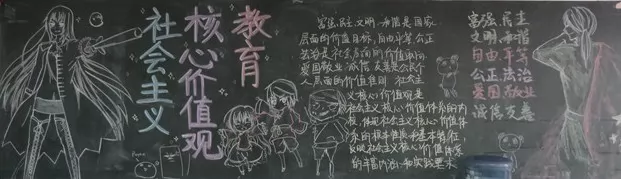 社会主义
核心价值观
教育
富强、民主、文明、和谐是国家
层面的价值目标,自由、平等、公正
法治是社会层面的价值取向,
爱国、敬业、诚信、友善是公民个
人层面的价值准则
社会主
义核心价值观是
社会主义核心价值体系的内
核,体现社会主义核心价值体
系的根本性质和基本特征,
反映社会主义核心价值体系
的丰富内涵和实践要求
富强 民主
文明 和谐
自由 平等
公正 法治
爱国 敬业
诚信 友善